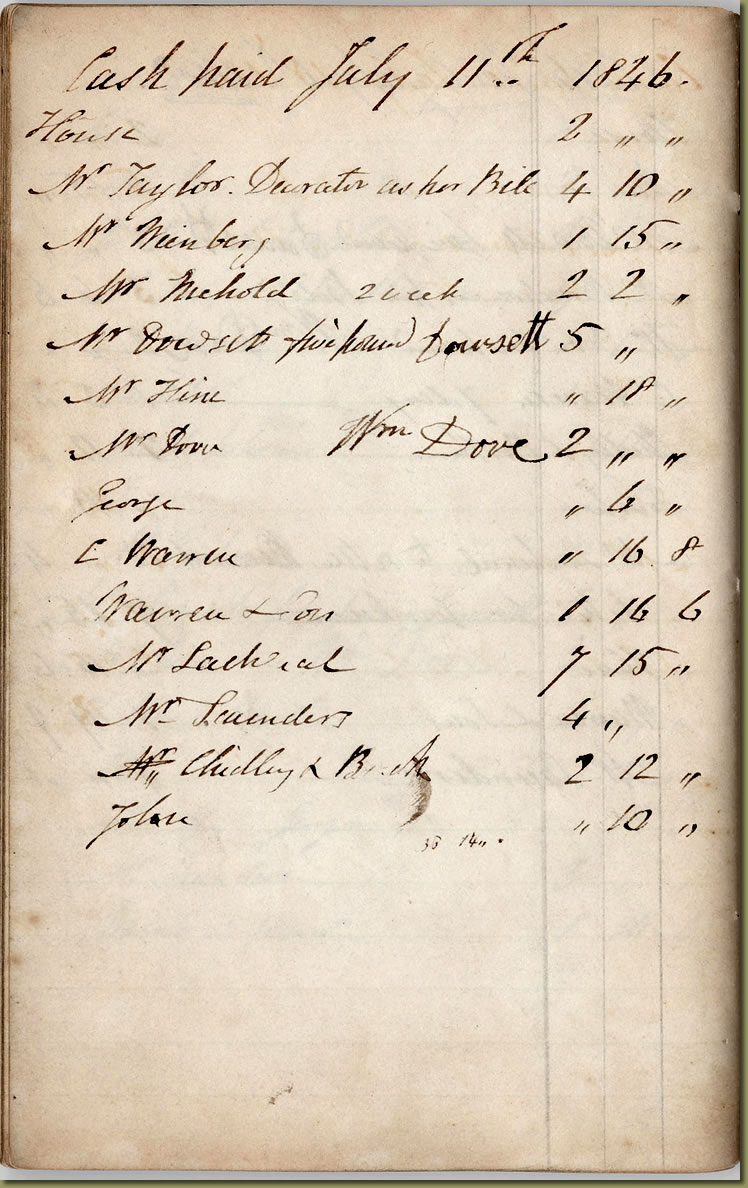 Cash paid July 11th 1846.
House 2 " "
Mr Taylor. Decorator as per Bill 4 10 "
Mr Weinberg 1 15 "
Mr Niehold 2 week 2 2 "
Mr Dowsett five pound Dowsett 5 "
Mr Hine " 18 "
Mr Dove Wm Dove 2 " "
George " 6 "
C Warren " 16 8
Warren & Son 1 16 6
Mr 7 15 "
Mr Saunders 4 "
Mr Chidley & 2 12 "
John " 10 "
14 "